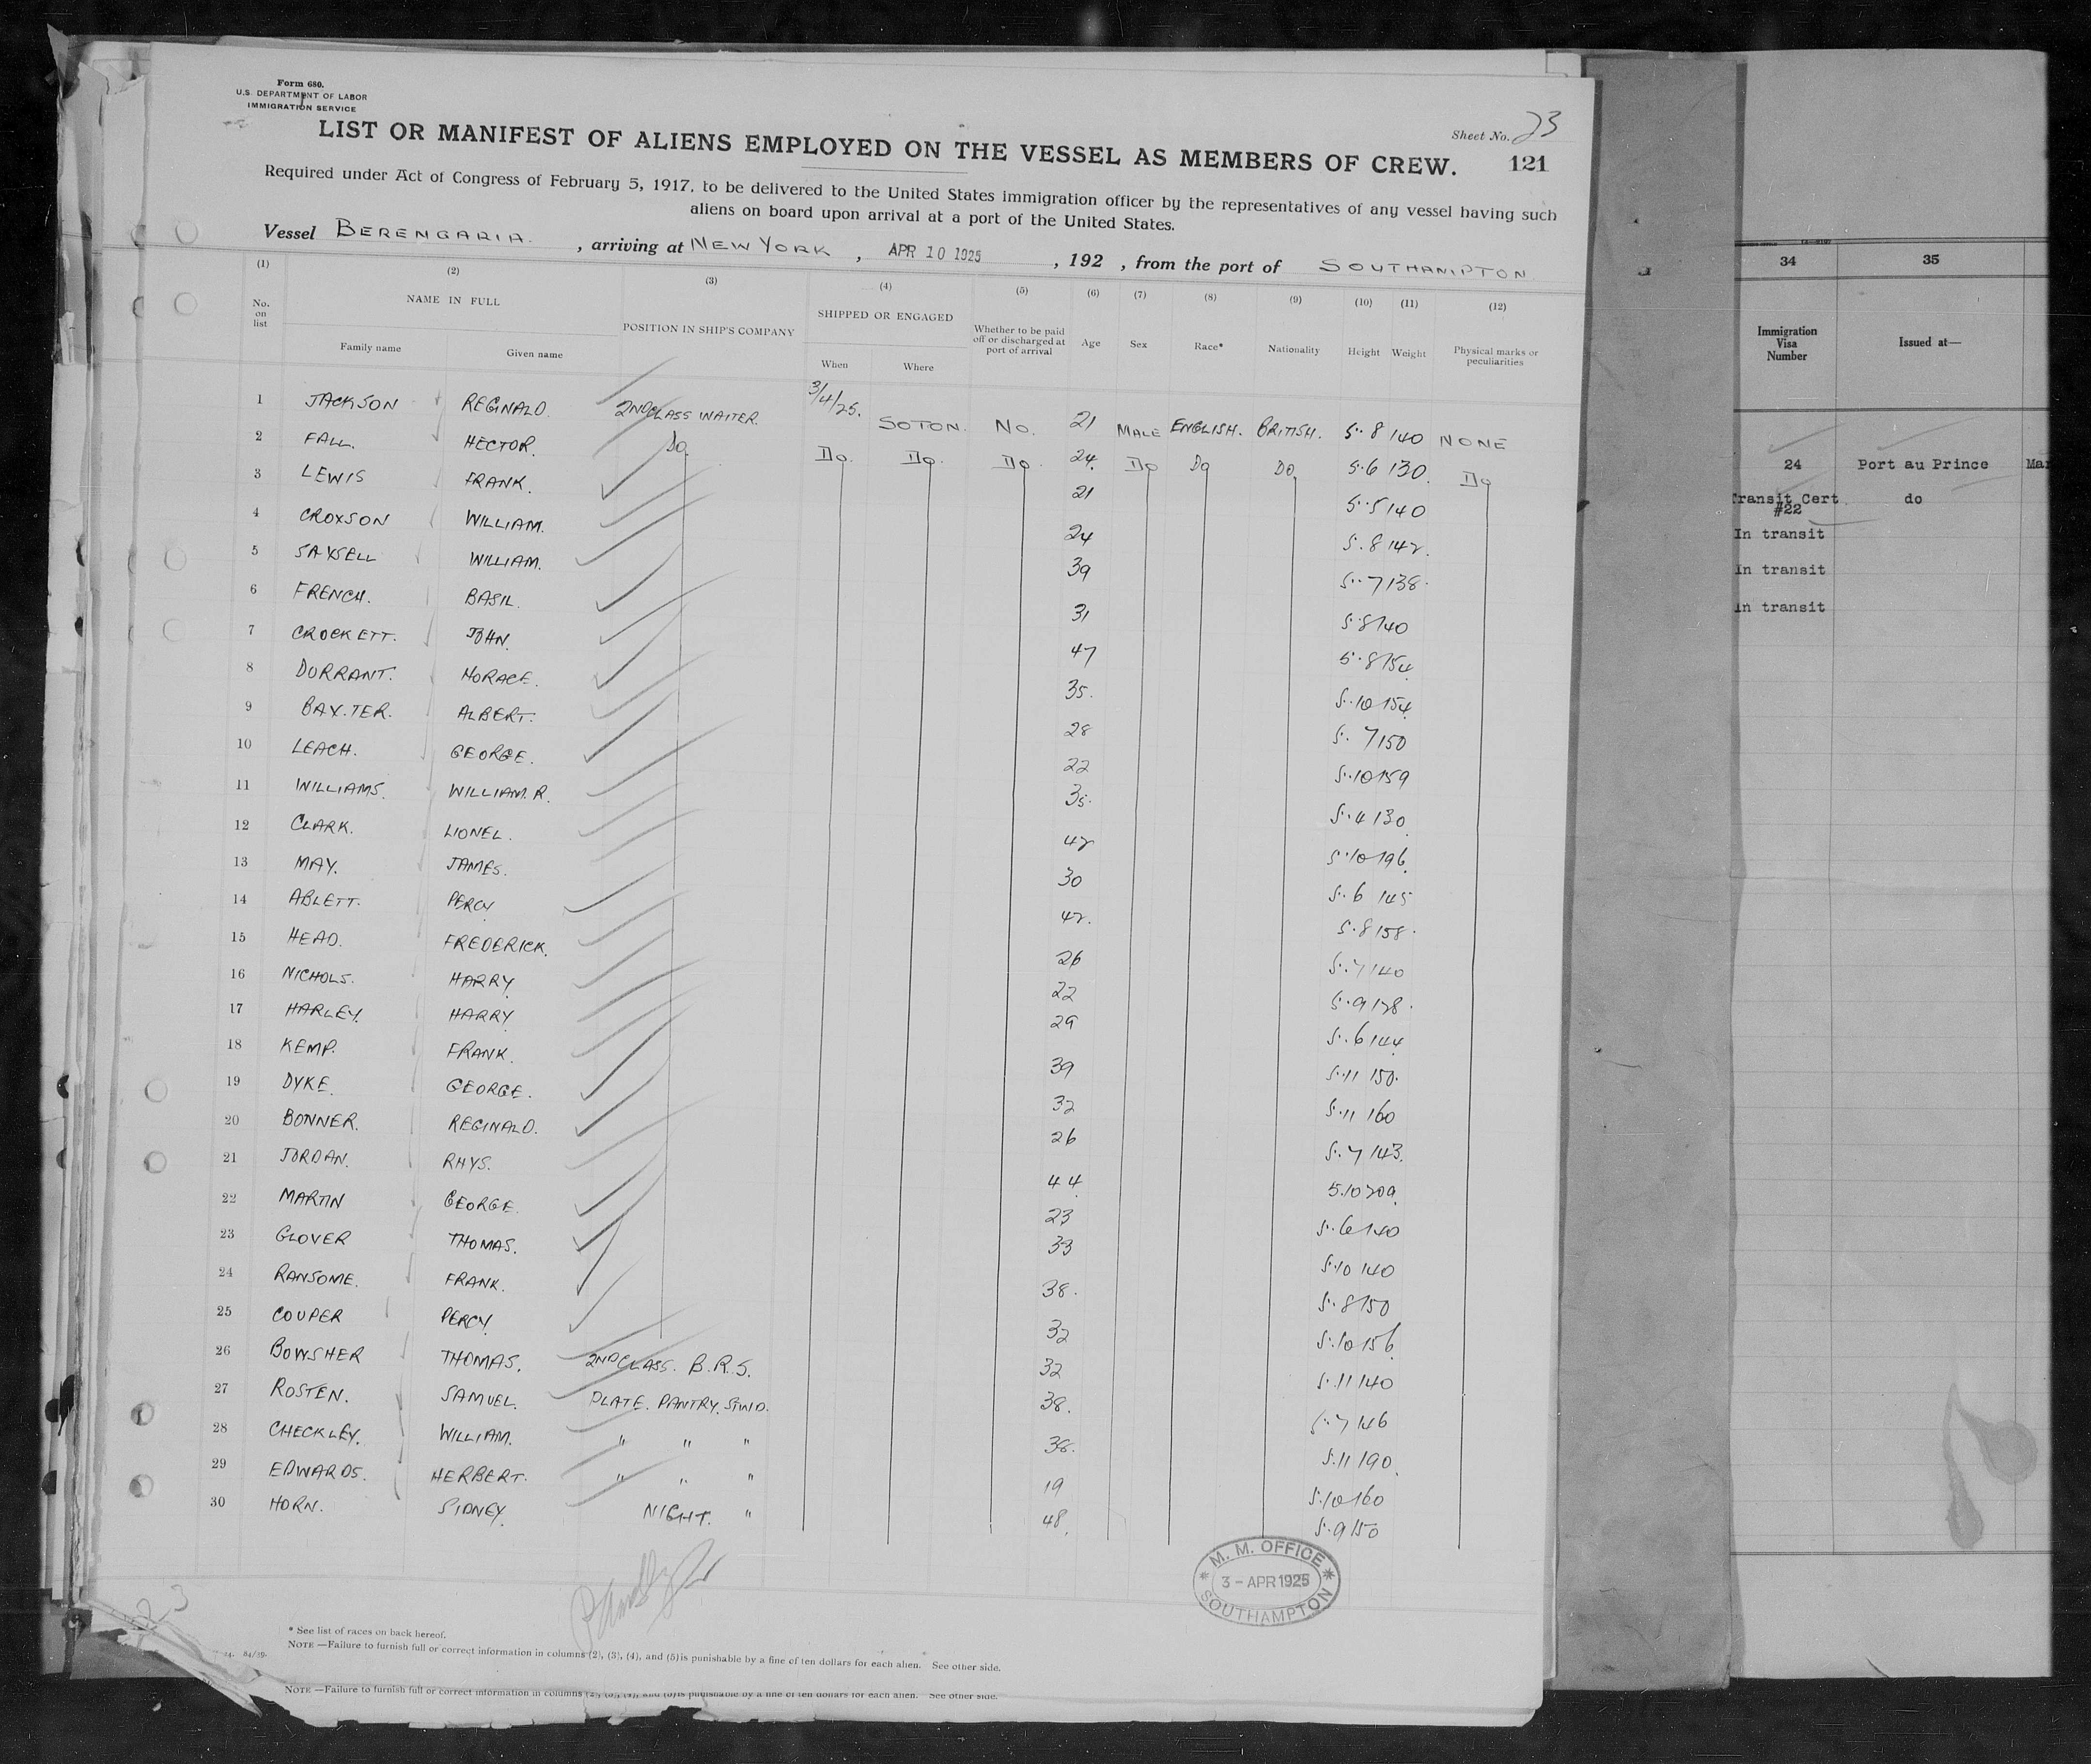 Form 680.
U.S. DEPARTMENT OF LABOR
IMMIGRATION SERVICE
Sheet No. 23
LIST OR MANIFEST OF ALIENS EMPLOYED ON THE VESSEL AS MEMBERS OF CREW. 121
Required under Act of Congress of February 5, 1917, to be delivered to the United States immigration officer by the representatives of any vessel having such
aliens on board upon arrival at a port of the United States.
Vessel BERENGARIA. , arriving at NEW YORK , APR 10 1925 , 192 , from the port of SOUTHAMPTON
(1) (2) (3) (4) (5) (6) (7) (8) (9) (10) (11) (12)
No. on list NAME IN FULL POSITION IN SHIP'S COMPANY SHIPPED OR ENGAGED Whether to be paid off or discharged at port of arrival Age Sex Race* Nationality Height Weight Physical marks or peculiarities
Family name Given name When Where
1 JACKSON REGINALD. 2ND CLASS WAITER. 3/4/25. SOTON. NO. 21 MALE ENGLISH. BRITISH. 5.8 140 NONE
2 FALL. HECTOR. Do. Do. Do. Do. 24. Do Do Do. 5.6 130. Do
3 LEWIS FRANK. 21 5.5 140
4 CROXSON WILLIAM. 24 5.8 142.
5 SAXSELL WILLIAM. 39 5.7 138.
6 FRENCH. BASIL. 31 5.8 140
7 CROCKETT. JOHN. 47 5.8 154
8 DURRANT. HORACE. 35. 5.10 154
9 BAXTER. ALBERT. 28 5.7 150
10 LEACH. GEORGE. 22 5.10 159
11 WILLIAMS. WILLIAM.R. 35. 5.4 130
12 CLARK. LIONEL. 42 5.10 196
13 MAY. JAMES. 30 5.6 145
14 ABLETT. PERCY 42. 5.8 158.
15 HEAD. FREDERICK. 26 5.7 140
16 NICHOLS. HARRY 22 5.9 128.
17 HARLEY. HARRY 29 5.6 144
18 KEMP. FRANK. 39 5.11 150.
19 DYKE. GEORGE. 32 5.11 160
20 BONNER. REGINALD. 26 5.7 143.
21 JORDAN. RHYS. 44 5.10 209.
22 MARTIN GEORGE. 23 5.6 140
23 GLOVER THOMAS. 33 5.10 140
24 RANSOME. FRANK. 38. 5.8 150
25 COUPER PERCY. 32 5.10 156
26 BOWSHER THOMAS. 2ND CLASS. B.R.S. 32 5.11 140
27 ROSTEN. SAMUEL. PLATE. PANTRY. STWD. 38. 5.7 146
28 CHECKLEY. WILLIAM. " " " 38. 5.11 190.
29 EDWARDS. HERBERT. " " " 19 5.10 160
30 HORN. SIDNEY. NIGHT. " 48. 5.9 150
M. M. OFFICE
3 - APR 1925
SOUTHAMPTON
23
* See list of races on back hereof.
NOTE —Failure to furnish full or correct information in columns (2), (3), (4), and (5) is punishable by a fine of ten dollars for each alien. See other side.
NOTE —Failure to furnish full or correct information in columns (2), (3), (4), and (5) is punishable by a fine of ten dollars for each alien. See other side.
34 35
Immigration Visa Number Issued at—
24 Port au Prince
Transit Cert #22 do
In transit
In transit
In transit